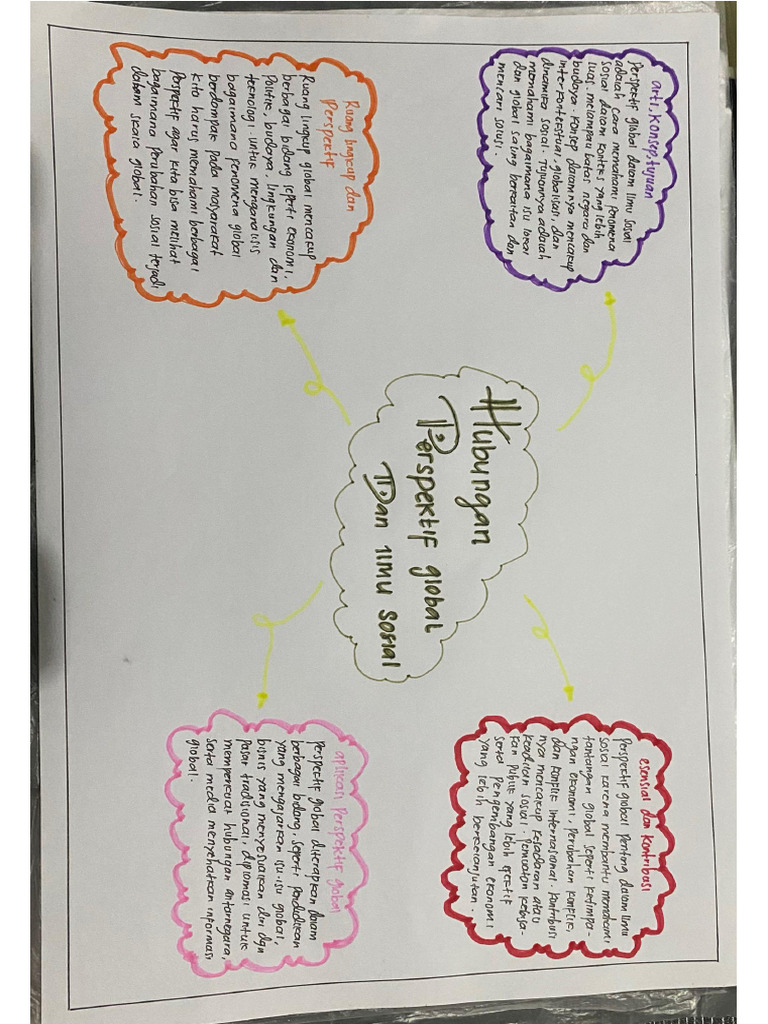 Hubungan
Perspektif global
Dan ilmu sosial
arti, konsep, tujuan
Perspektif global dalam ilmu sosial
adalah cara memahami fenomena
sosial dalam konteks yang lebih
luas, melampaui batas negara dan
budaya. Konsep dalamnya mencakup
interkontekstual, globalisasi, dan
dinamika sosial. Tujuannya adalah
memahami bagaimana isu lokal
dan global saling berkaitan dan
mencari solusi.
esensial dan Kontribusi
Perspektif global penting dalam ilmu
sosial karena membantu memahami
tantangan global seperti ketimpa-
ngan ekonomi, Perubahan konflik,
dan konflik internasional. Kontribusi
nya mencakup kesadaran atau
keadilan sosial. Pembuatan kebija-
kan Publik yang lebih efektif
serta Pengembangan ekonomi
yang lebih berkelanjutan.
Ruang lingkup dan
Perspektif
Ruang lingkup global mencakup
berbagai bidang seperti ekonomi,
Politik, budaya, lingkungan dan
teknologi untuk menganalisis
bagaimana fenomena global
berdampak pada masyarakat
kita harus memahami berbagai
Perspektif agar kita bisa melihat
bagaimana perubahan sosial terjadi
dalam skala global.
aplikasi Perspektif global
Perspektif global diterapkan dalam
berbagai bidang, seperti pendidikan
yang mengajarkan isu-isu global,
bisnis yang menyesuaikan diri dgn
pasar tradisional, diplomasi untuk
memperkuat hubungan antarnegara,
serta media menyehatkan informasi
global.